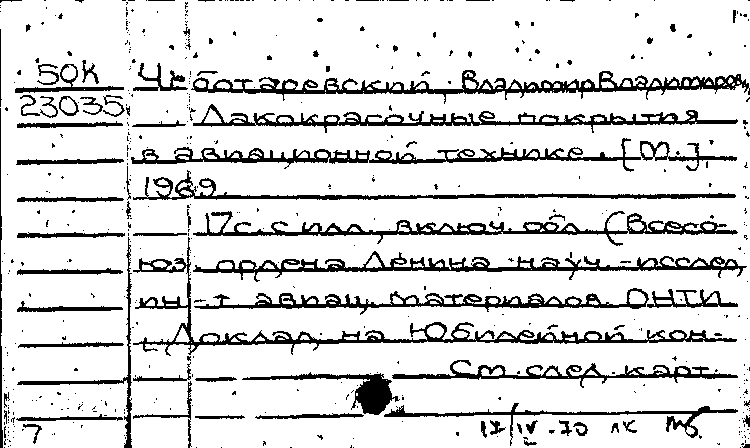 50К Чеботаревский Владимир Владимиров,
23035 Лакокрасочные покрытия
в авиационной технике. [М.],
1969.
17с. с илл., включ. обл. (Всесо-
юз. ордена Ленина науч.-исслед.
ин-т авиац. материалов. ОНТИ
Доклад на Юбилейной кон-
См. след. карт.
7 17/IV-70 лк